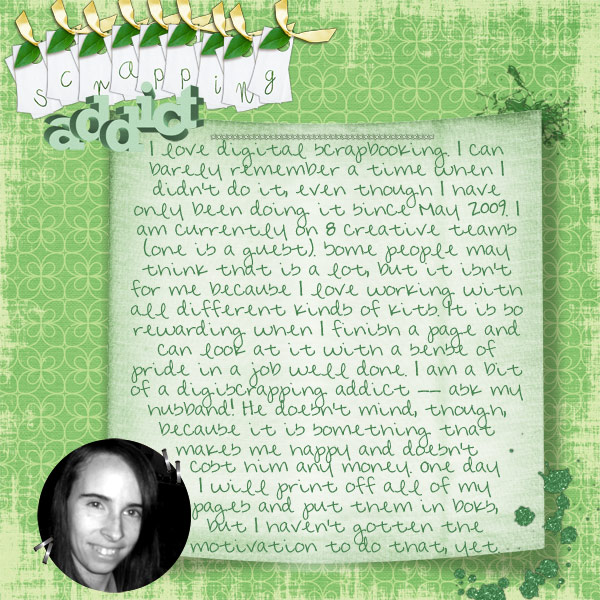 scrapping
addict
I love digital scrapbooking. I can
barely remember a time when I
didn't do it, even though I have
only been doing it since May 2009. I
am currently on 8 creative teams
(one is a guest). Some people may
think that is a lot, but it isn't
for me because I love working with
all different kinds of kits. It is so
rewarding when I finish a page and
can look at it with a sense of
pride in a job well done. I am a bit
of a digiscrapping addict -- ask my
husband! He doesn't mind, though,
because it is something that
makes me happy and doesn't
cost him any money. One day
I will print off all of my
pages and put them in boks,
but I haven't gotten the
motivation to do that, yet.